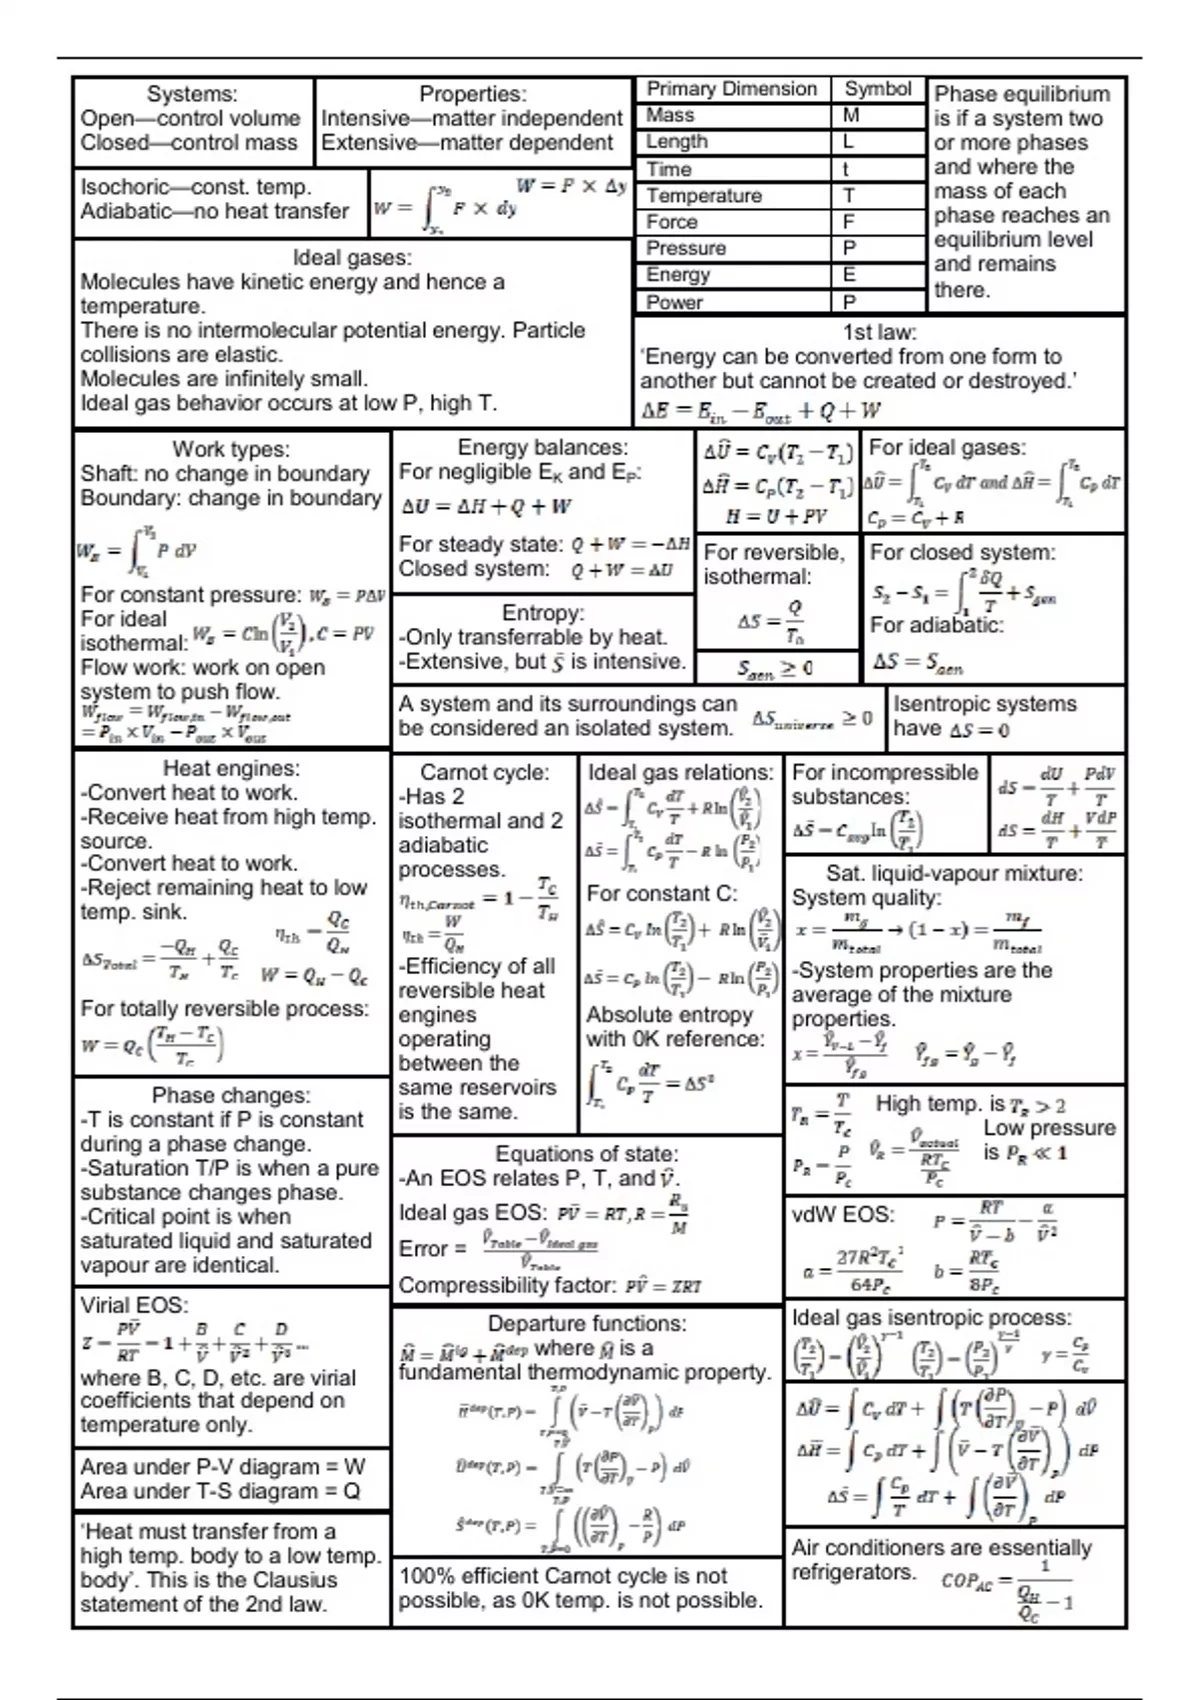 Systems:
Open—control volume
Closed—control mass
Properties:
Intensive—matter independent
Extensive—matter dependent
Primary Dimension Symbol
Mass M
Length L
Time t
Temperature T
Force F
Pressure P
Energy E
Power P
Phase equilibrium
is if a system two
or more phases
and where the
mass of each
phase reaches an
equilibrium level
and remains
there.
Isochoric—const. temp.
Adiabatic—no heat transfer
W = F × Δy
W = ∫ F × dy
Ideal gases:
Molecules have kinetic energy and hence a
temperature.
There is no intermolecular potential energy. Particle
collisions are elastic.
Molecules are infinitely small.
Ideal gas behavior occurs at low P, high T.
1st law:
‘Energy can be converted from one form to
another but cannot be created or destroyed.’
ΔE = E_in − E_out + Q + W
Work types:
Shaft: no change in boundary
Boundary: change in boundary
W_B = ∫_V₁^V₂ P dV
For constant pressure: W_B = PΔV
For ideal
isothermal: W_B = C ln(V₂/V₁), C = PV
Flow work: work on open
system to push flow.
W_flow = W_flow,in − W_flow,out
= P_in × V_in − P_out × V_out
Energy balances:
For negligible E_K and E_P:
ΔU = ΔH + Q + W
For steady state: Q + W = −ΔH
Closed system: Q + W = ΔU
ΔÛ = C_V(T₂ − T₁)
ΔĤ = C_P(T₂ − T₁)
H = U + PV
For ideal gases:
ΔÛ = ∫_T₁^T₂ C_V dT and ΔĤ = ∫_T₁^T₂ C_P dT
C_P = C_V + R
Entropy:
-Only transferrable by heat.
-Extensive, but Ŝ is intensive.
For reversible,
isothermal:
ΔS = Q/T₀
S_gen ≥ 0
For closed system:
S₂ − S₁ = ∫₁² δQ/T + S_gen
For adiabatic:
ΔS = S_gen
A system and its surroundings can
be considered an isolated system. ΔS_universe ≥ 0
Isentropic systems
have ΔS = 0
Heat engines:
-Convert heat to work.
-Receive heat from high temp.
source.
-Convert heat to work.
-Reject remaining heat to low
temp. sink.
η_th = Q_C/Q_H
ΔS_Total = −Q_H/T_H + Q_C/T_C
W = Q_H − Q_C
For totally reversible process:
W = Q_C((T_H − T_C)/T_C)
Carnot cycle:
-Has 2
isothermal and 2
adiabatic
processes.
η_th,Carnot = 1 − T_C/T_H
η_th = W/Q_H
-Efficiency of all
reversible heat
engines
operating
between the
same reservoirs
is the same.
Ideal gas relations:
ΔŜ = ∫ C_V dT/T + R ln(V̂₂/V̂₁)
ΔŜ = ∫ C_P dT/T − R ln(P₂/P₁)
For constant C:
ΔŜ = C_V ln(T₂/T₁) + R ln(V̂₂/V̂₁)
ΔŜ = C_P ln(T₂/T₁) − R ln(P₂/P₁)
Absolute entropy
with 0K reference:
∫ C_P dT/T
For incompressible
substances:
ΔŜ = C_avg ln(T₂/T₁)
dS = dU/T + PdV/T
dS = dH/T + VdP/T
Sat. liquid-vapour mixture:
System quality:
x = m_g/m_total → (1 − x) = m_f/m_total
-System properties are the
average of the mixture
properties.
x = (ŷ_V-L − ŷ_f)/ŷ_fg ŷ_fg = ŷ_g − ŷ_f
Phase changes:
-T is constant if P is constant
during a phase change.
-Saturation T/P is when a pure
substance changes phase.
-Critical point is when
saturated liquid and saturated
vapour are identical.
T_R = T/T_C High temp. is T_R > 2
Low pressure
is P_R ≪ 1
P_R = P/P_C V̂_R = V̂_actual/(RT_C/P_C)
Equations of state:
-An EOS relates P, T, and V̂.
Ideal gas EOS: PV̂ = RT, R = R_u/M
Error = (V̂_Table − V̂_Ideal gas)/V̂_Table
Compressibility factor: PV̂ = ZRT
vdW EOS: P = RT/(V̂ − b) − a/V̂²
a = 27R²T_C²/64P_C b = RT_C/8P_C
Virial EOS:
Z = PV̂/RT = 1 + B/V̂ + C/V̂² + D/V̂³ ...
where B, C, D, etc. are virial
coefficients that depend on
temperature only.
Departure functions:
M̂ = M̂^ig + M̂^dep where M̂ is a
fundamental thermodynamic property.
Ĥ^dep(T,P) = ∫ (V̂ − T(∂V̂/∂T)_P) dP
Û^dep(T,P) = ∫ (T(∂P/∂T)_V̂ − P) dV̂
Ŝ^dep(T,P) = ∫ ((∂V̂/∂T)_P − R/P) dP
Ideal gas isentropic process:
(T₂/T₁) = (V̂₂/V̂₁)^γ−1 (T₂/T₁) = (P₂/P₁)^(γ−1)/γ γ = C_P/C_V
ΔÛ = ∫ C_V dT + ∫ (T(∂P/∂T)_V̂ − P) dV̂
ΔĤ = ∫ C_P dT + ∫ (V̂ − T(∂V̂/∂T)_P) dP
ΔŜ = ∫ C_P/T dT + ∫ (∂V̂/∂T)_P dP
Area under P-V diagram = W
Area under T-S diagram = Q
‘Heat must transfer from a
high temp. body to a low temp.
body’. This is the Clausius
statement of the 2nd law.
100% efficient Carnot cycle is not
possible, as 0K temp. is not possible.
Air conditioners are essentially
refrigerators. COP_AC = 1/(Q_H/Q_C − 1)